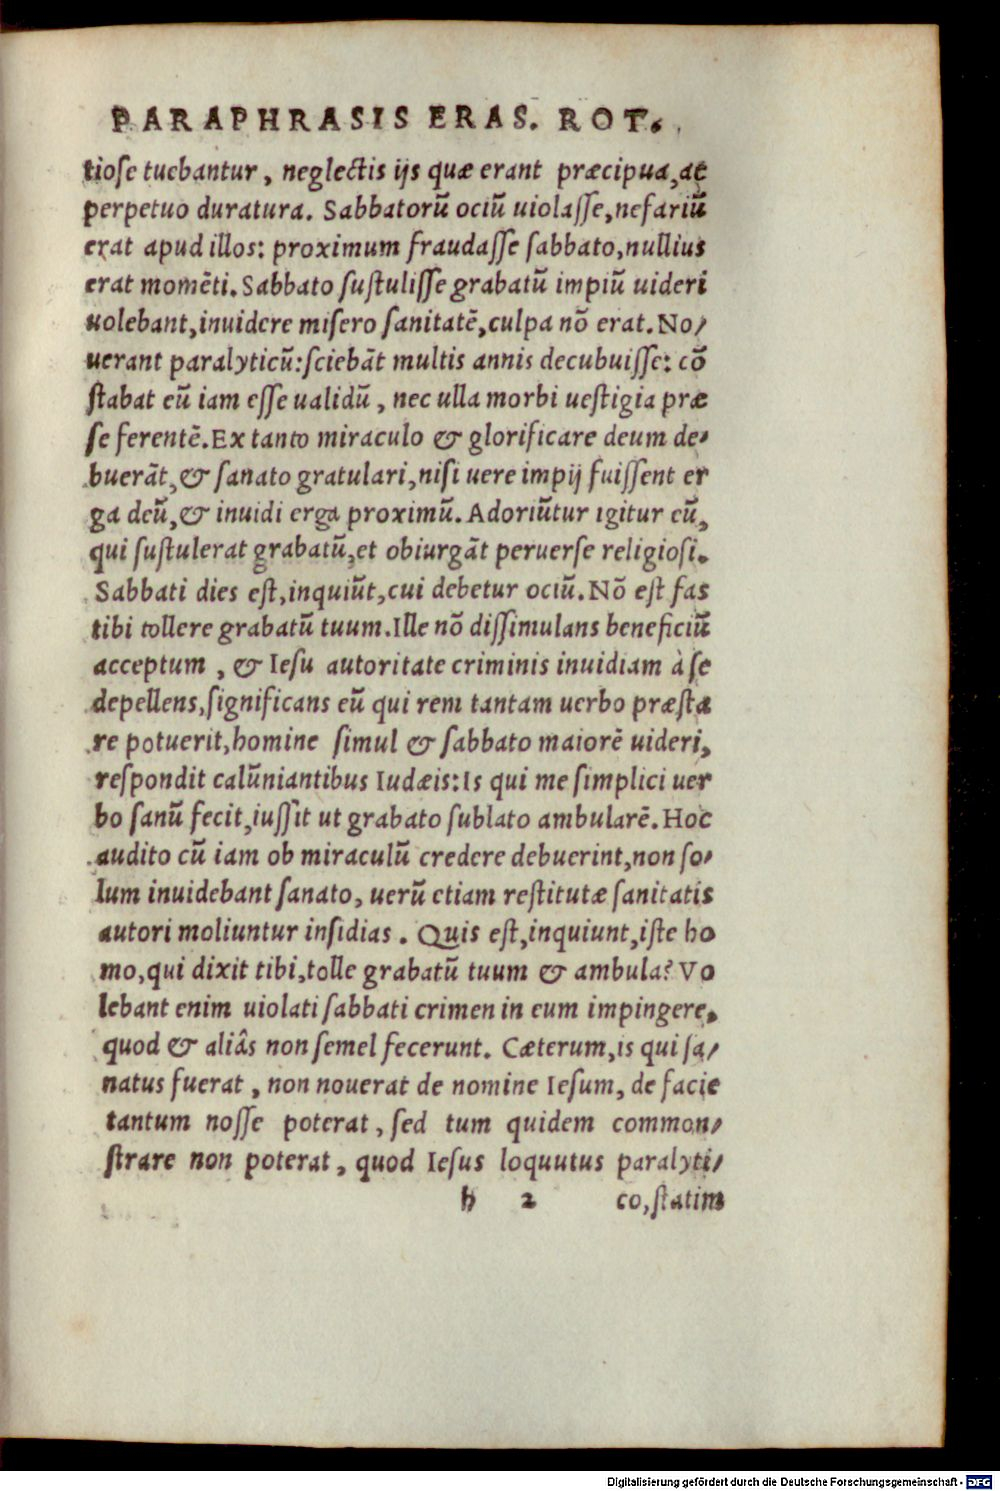 PARAPHRASIS ERAS. ROT.
tiose tuebantur, neglectis ijs quæ erant præcipua, ac
perpetuo duratura. Sabbatorũ ociũ uiolasse, nefariũ
erat apud illos: proximum fraudasse sabbato, nullius
erat momẽti. Sabbato sustulisse grabatũ impiũ uideri
uolebant, inuidere misero sanitatẽ, culpa nõ erat. No/
uerant paralyticũ: sciebãt multis annis decubuisse: cõ
stabat eũ iam esse ualidũ, nec ulla morbi uestigia præ
se ferentẽ. Ex tanto miraculo & glorificare deum de/
buerãt, & sanato gratulari, nisi uere impij fuissent er
ga deũ, & inuidi erga proximũ. Adoriũtur igitur eũ,
qui sustulerat grabatũ, et obiurgãt peruerse religiosi.
Sabbati dies est, inquiũt, cui debetur ociũ. Nõ est fas
tibi tollere grabatũ tuum. Ille nõ dissimulans beneficiũ
acceptum, & Iesu autoritate criminis inuidiam à se
depellens, significans eũ qui rem tantam uerbo præsta
re potuerit, homine simul & sabbato maiorẽ uideri,
respondit calũniantibus Iudæis: Is qui me simplici uer
bo sanũ fecit, iussit ut grabato sublato ambularẽ. Hoc
audito cũ iam ob miraculũ credere debuerint, non so/
lum inuidebant sanato, uerũ etiam restitutæ sanitatis
autori moliuntur insidias. Quis est, inquiunt, iste ho
mo, qui dixit tibi, tolle grabatũ tuum & ambula? Vo
lebant enim uiolati sabbati crimen in eum impingere,
quod & aliâs non semel fecerunt. Cæterum, is qui sa/
natus fuerat, non nouerat de nomine Iesum, de facie
tantum nosse poterat, sed tum quidem common/
strare non poterat, quod Iesus loquutus paralyti/
h 2 co, statim
Digitalisierung gefördert durch die Deutsche Forschungsgemeinschaft - DFG